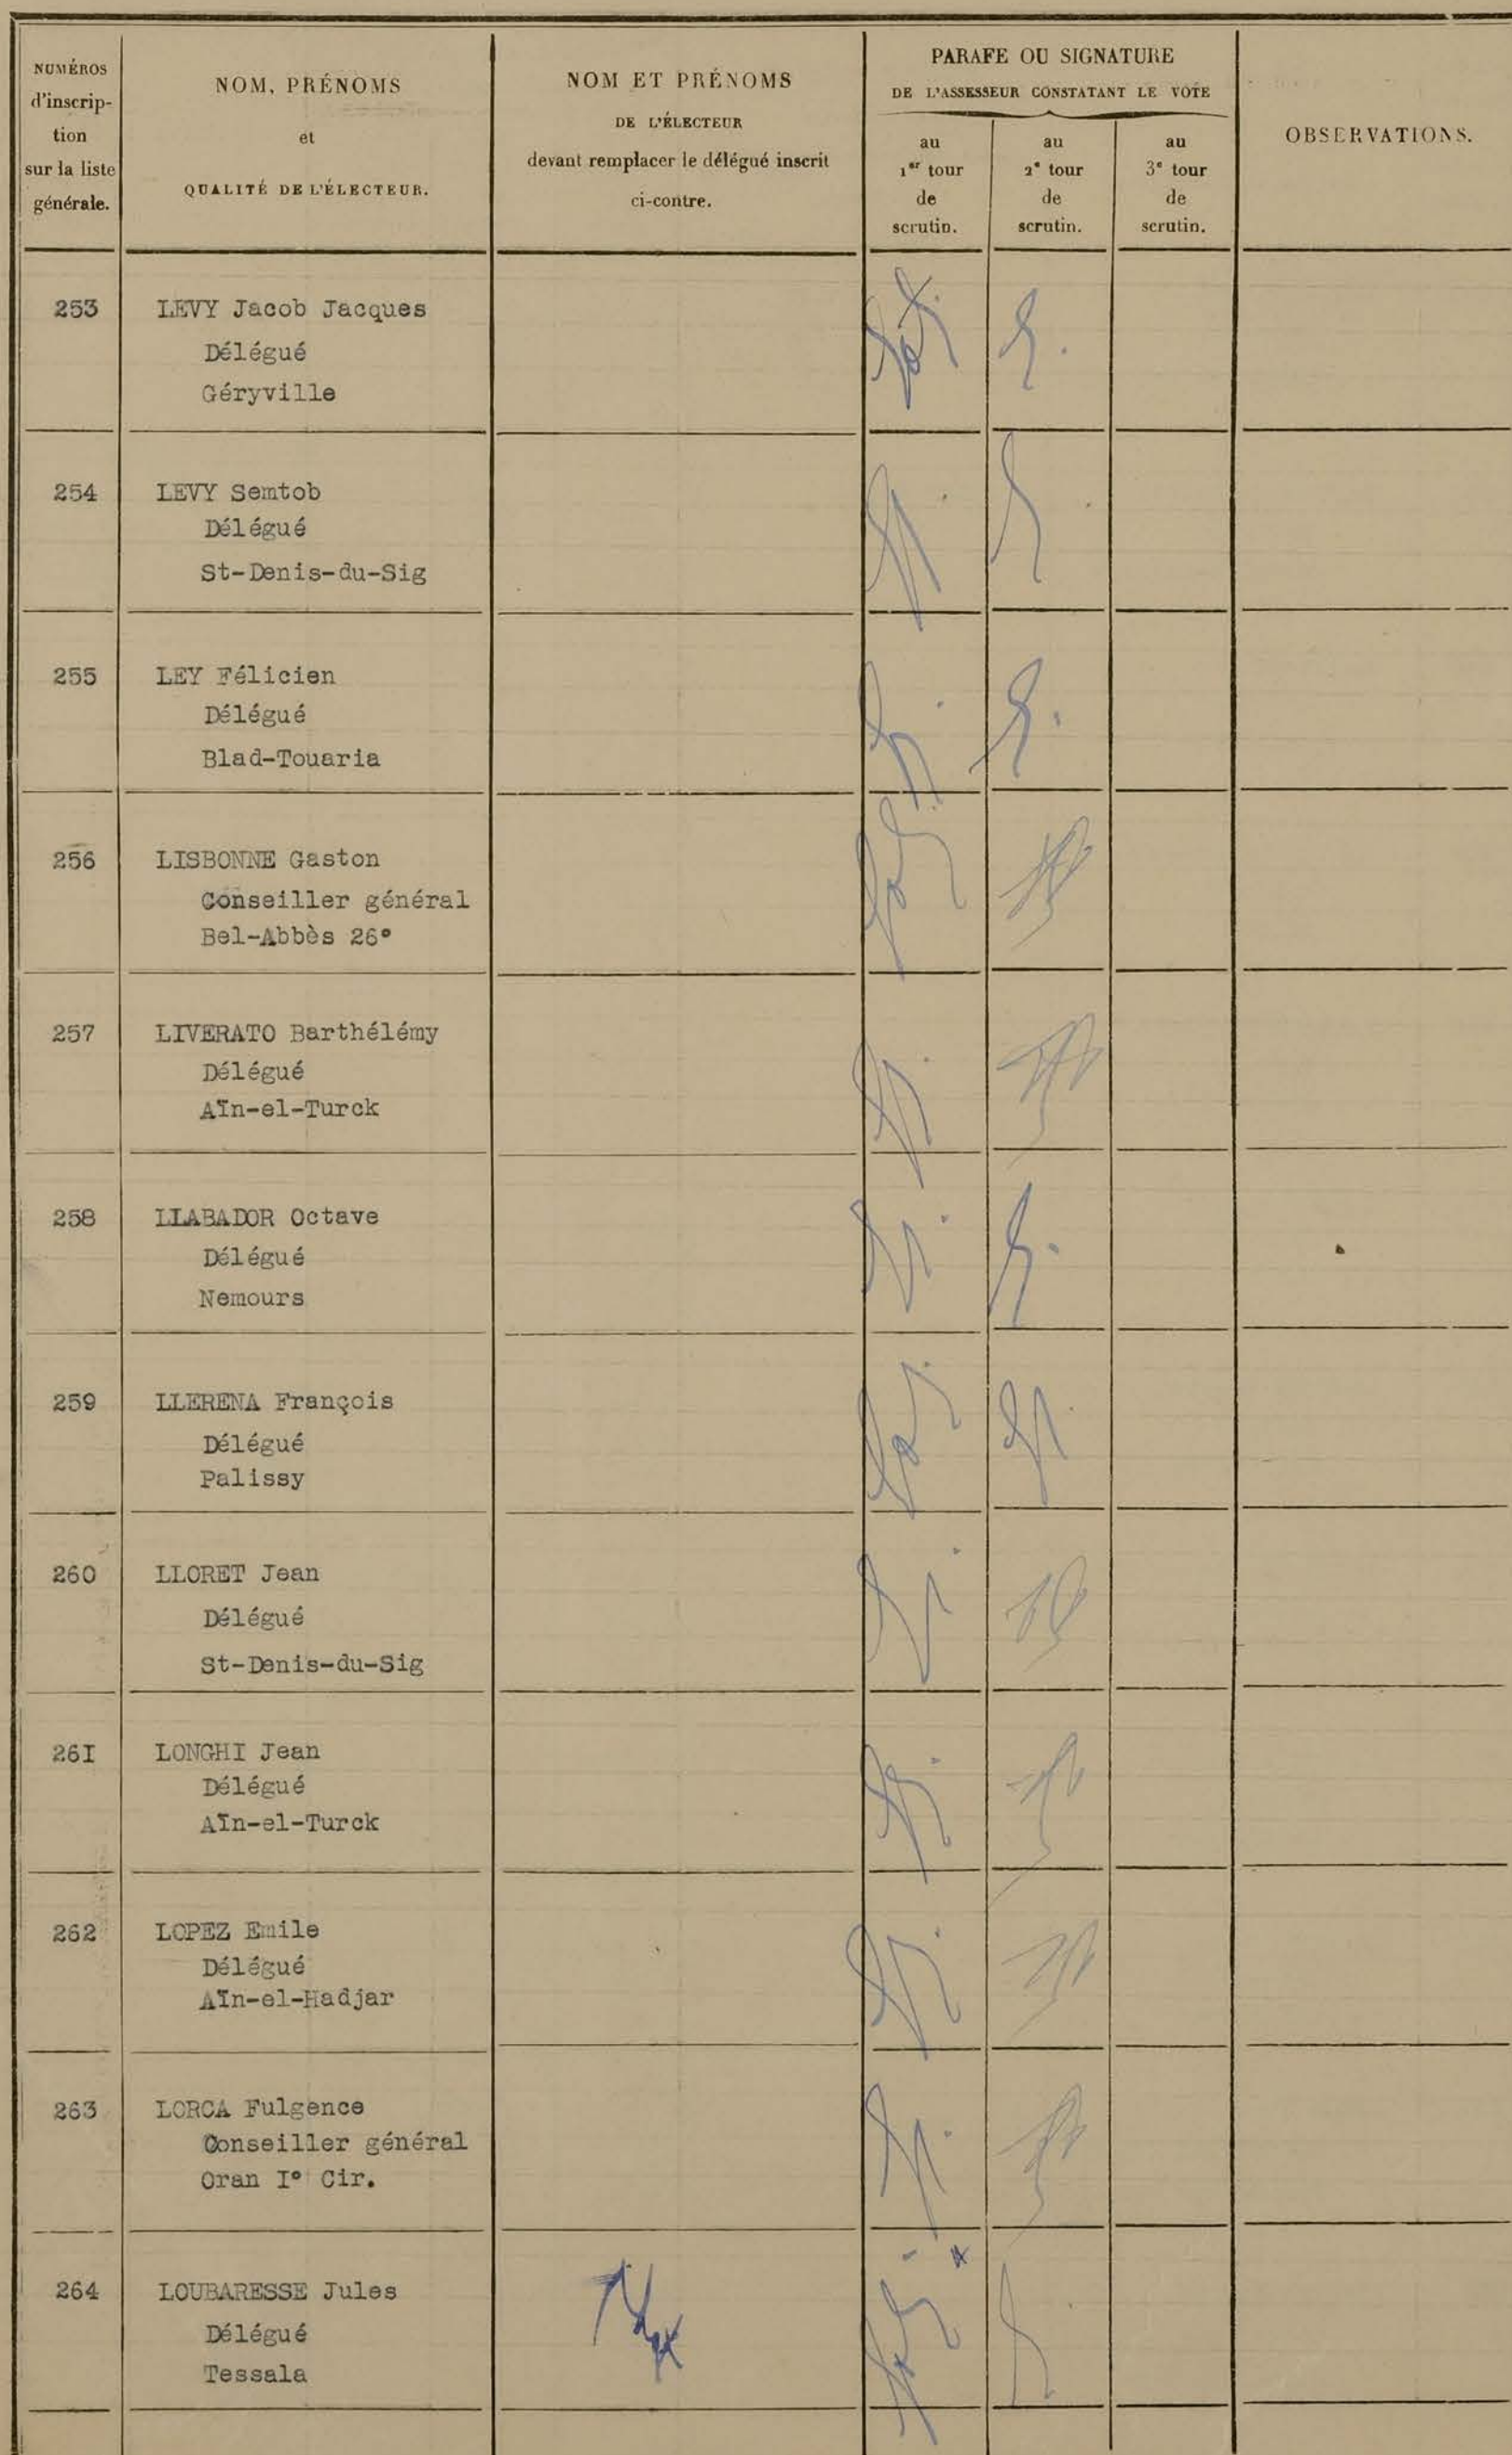 NUMÉROS
d'inscrip-
tion
sur la liste
générale.
NOM, PRÉNOMS
et
QUALITÉ DE L'ÉLECTEUR.
NOM ET PRÉNOMS
DE L'ÉLECTEUR
devant remplacer le délégué inscrit
ci-contre.
PARAFE OU SIGNATURE
DE L'ASSESSEUR CONSTATANT LE VOTE
au
1er tour
de
scrutin.
au
2e tour
de
scrutin.
au
3e tour
de
scrutin.
OBSERVATIONS.
253 LEVY Jacob Jacques
Délégué
Géryville
254 LEVY Semtob
Délégué
St-Denis-du-Sig
255 LEY Félicien
Délégué
Blad-Touaria
256 LISBONNE Gaston
Conseiller général
Bel-Abbès 26°
257 LIVERATO Barthélémy
Délégué
Aïn-el-Turck
258 LLABADOR Octave
Délégué
Nemours
259 LLERENA François
Délégué
Palissy
260 LLORET Jean
Délégué
St-Denis-du-Sig
26I LONGHI Jean
Délégué
Aïn-el-Turck
262 LOPEZ Emile
Délégué
Aïn-el-Hadjar
263 LORCA Fulgence
Conseiller général
Oran I° Cir.
264 LOUBARESSE Jules
Délégué
Tessala